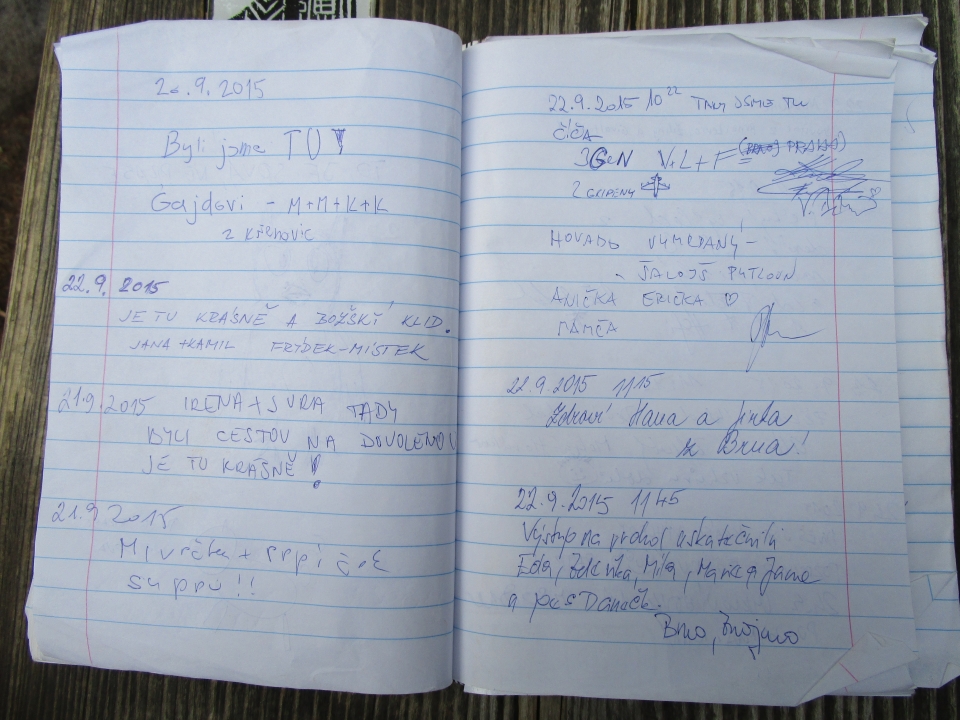 2 .9.2015
Byli jsme TU
Gajdovi - M+M+K+K
z Křenovic
22.9. 2015
JE TU KRÁSNĚ A BOŽSKÝ KLID.
JANA + KAMIL FRÝDEK-MÍSTEK
21.9.2015 IRENA + JURA TADY
BYLI CESTOU NA DOVOLENOU
JE TU KRÁSNĚ!
21.9 2015
Mivrčka +
22.9.2015 10 22 JSME TU
ČÍČA
3GeN V+L+F
2 GRIPENY
HOVADO
ANIČKA ERIČKA ♡
MAMČA
22.9 2015 11 15
Zdraví Hana a Jirka
z Brna!
22.9.2015 11 45
Výstup na vrchol uskutečnili
Eda, Zdenka, Míla,
a pes Daneček.
Brno, Znojmo